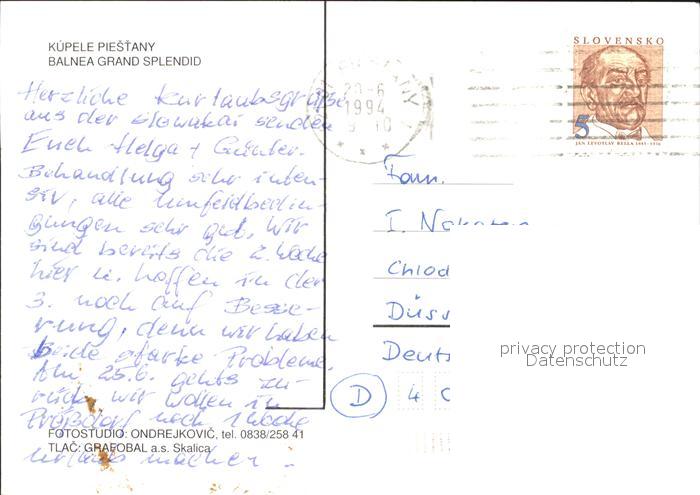 KÚPELE PIEŠŤANY
BALNEA GRAND SPLENDID
Herzliche Kurlaubsgrüße
aus der Slowakai senden
Euch Helga + Günter.
Behandlung sehr inten-
siv, alle Umfeldbedin-
gungen sehr gut. Wir
sind bereits die 2. Woche
hier u. hoffen in der
3. noch auf Besse-
rung, denn wir haben
beide starke Probleme.
Am 25.6. gehts zu-
rück wir wollen in
noch 1 Woche
Urlaub machen.
FOTOSTUDIO: ONDREJKOVIČ, tel. 0838/258 41
TLAČ: GRAFOBAL a.s. Skalica
SLOVENSKO
5
JÁN LEVOSLAV BELLA 1843-1936
20-6
1994
Fam.
I.
Chlod
Düss
Deuts
D 4
privacy protection
Datenschutz